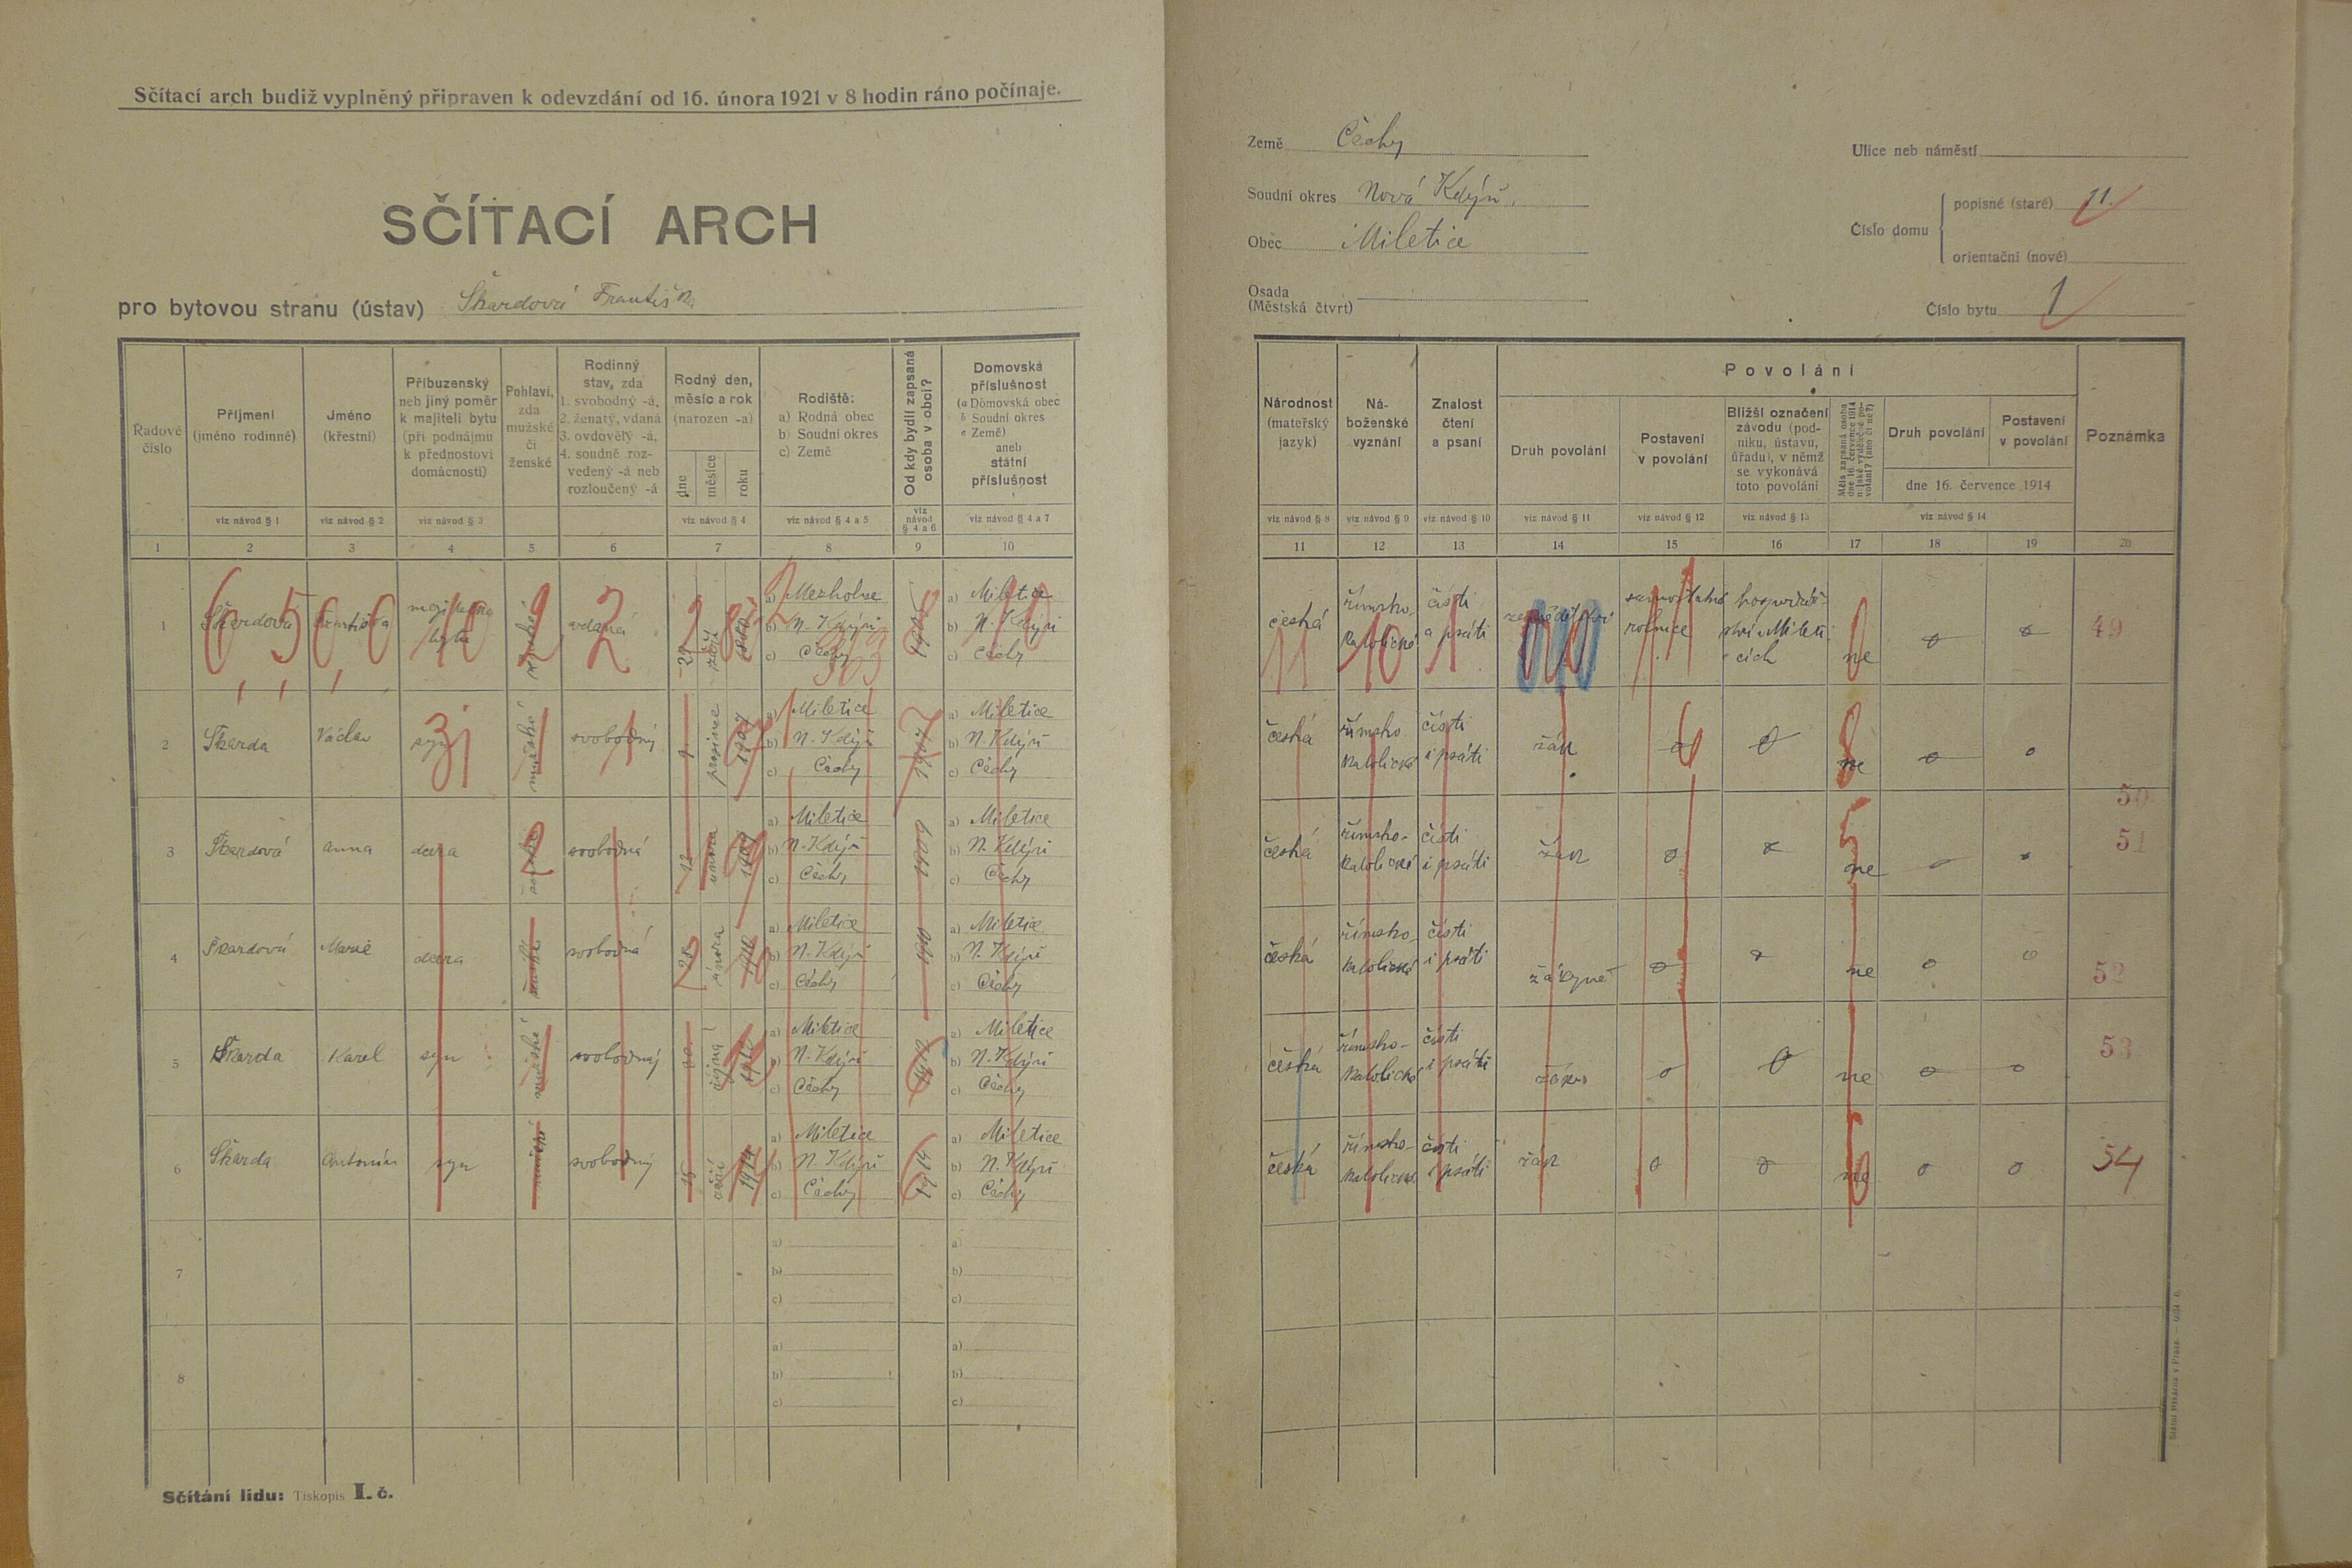 Sčítací arch budiž vyplněný připraven k odevzdání od 16. února 1921 v 8 hodin ráno počínaje.
SČÍTACÍ ARCH
pro bytovou stranu (ústav) Škardová Františka
Země Čechy
Soudní okres Nová Kdýň.
Obec Miletice
Osada
(Městská čtvrt)
Ulice neb náměstí
Číslo domu
popisné (staré) 11.
orientační (nové)
Číslo bytu 1
Řadové číslo
Příjmení (jméno rodinné)
Jméno (křestní)
Příbuzenský neb jiný poměr k majiteli bytu (při podnájmu k přednostovi domácnosti)
Pohlaví, zda mužské či ženské
Rodinný stav, zda 1. svobodný -á, 2. ženatý, vdaná 3. ovdovělý -á, 4. soudně rozvedený -á neb rozloučený -á
Rodný den, měsíc a rok (narozen -a)
dne měsíce roku
Rodiště: a) Rodná obec b) Soudní okres c) Země
Od kdy bydlí zapsaná osoba v obci?
Domovská příslušnost (a Domovská obec b Soudní okres c Země) aneb státní příslušnost
viz návod § 1
viz návod § 2
viz návod § 3
viz návod § 4
viz návod § 4 a 5
viz návod § 4 a 6
viz návod § 4 a 7
1 2 3 4 5 6 7 8 9 10
Národnost (mateřský jazyk)
Náboženské vyznání
Znalost čtení a psaní
Povolání
Druh povolání
Postavení v povolání
Bližší označení závodu (podniku, ústavu, úřadu), v němž se vykonává toto povolání
Druh povolání
Postavení v povolání
dne 16. července 1914
Poznámka
viz návod § 8
viz návod § 9
viz návod § 10
viz návod § 11
viz návod § 12
viz návod § 13
viz návod § 14
11 12 13 14 15 16 17 18 19 20
1 Škardová Františka vdaná září
a) b) N. Kdýni c) Čechy
a) Miletice b) N. Kdýni c) Čechy
česká římsko katolické čísti a psáti samostatná rolnice ne 49
2 Škarda Václav syn mužské svobodný prosince 1907
a) Miletice b) N. Kdýň c) Čechy
1907
a) Miletice b) N. Kdýň c) Čechy
česká římsko katolické čísti i psáti žák ne 50
3 Škardová Anna dcera svobodná 12 února 1909
a) Miletice b) N. Kdýň c) Čechy
1909
a) Miletice b) N. Kdýni c) Čechy
česká římsko-katolické čísti i psáti žák ne 51
4 Škardová Marie dcera svobodná února
a) Miletice b) N. Kdýň c) Čechy
a) Miletice b) N. Kdýň c) Čechy
česká římsko-katolické čísti i psáti žákyně ne 52
5 Škarda Karel syn mužské svobodný října
a) Miletice b) N. Kdýň c) Čechy
a) Miletice b) N. Kdýň c) Čechy
česká římsko-katolické čísti i psáti ne 53
6 Škarda Antonín syn mužské svobodný září 1914
a) Miletice b) N. Kdýň c) Čechy
1914
a) Miletice b) N. Kdýň c) Čechy
česká římsko-katolické čísti i psáti žák ne 54
7
a) b) c)
a) b) c)
8
a) b) c)
a) b) c)
Sčítání lidu: Tiskopis I. č.